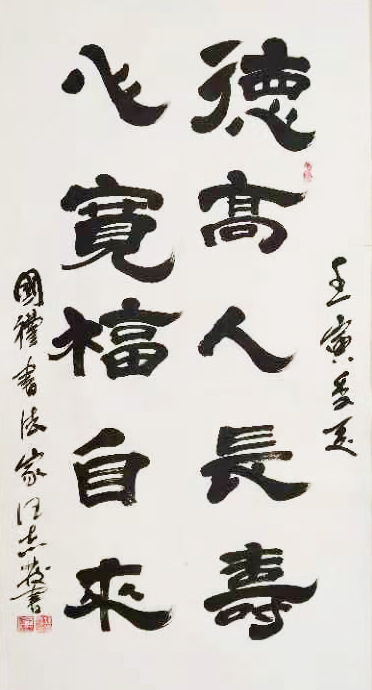 壬寅季夏
德高人長壽
心寬福自來
國禮書法家汪志書